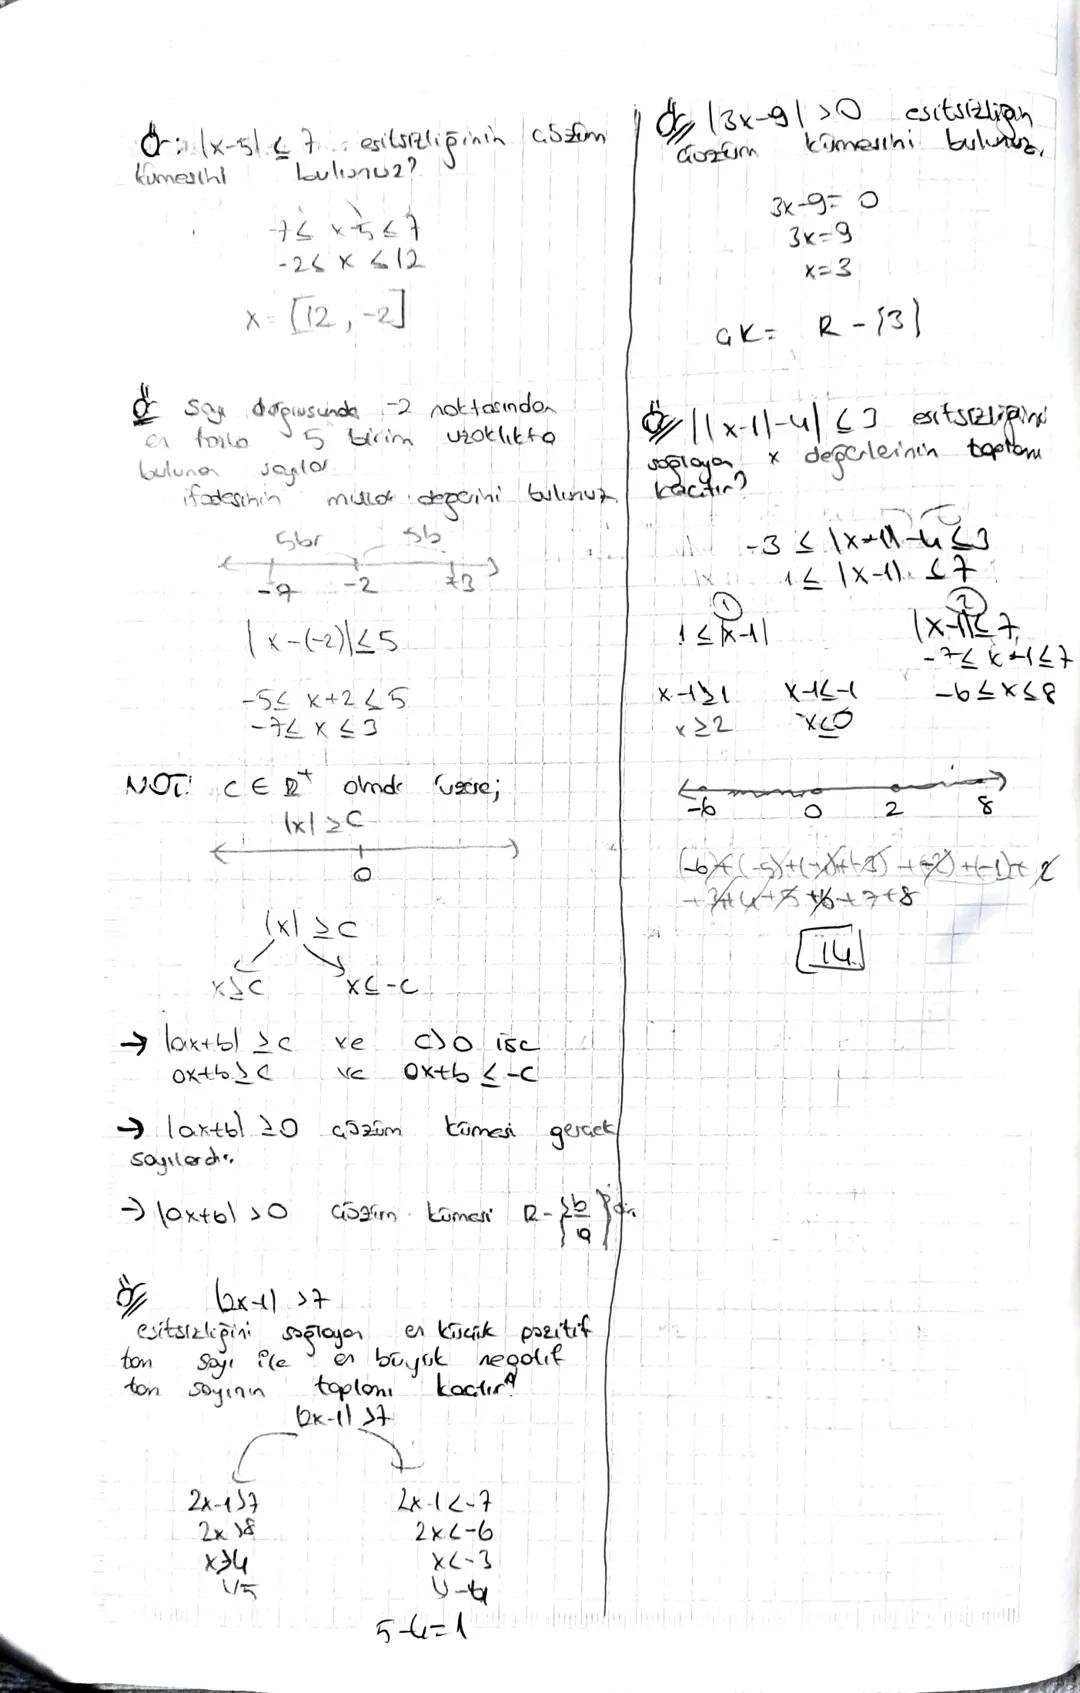 Ör: |x-5| ≤ 7 eşitsizliğinin çözüm
kümesini bulunuz?
-7 ≤ x-5 ≤ 7
-2 ≤ x ≤ 12
x = [12, -2]
Ör Sayı doğrusunda -2 noktasından
en fazla 5 birim uzaklıkta
bulunan sayılar
ifadesinin mutlak değerini bulunuz
5br 5b
-7 -2 +3
|x-(-2)| ≤ 5
-5 ≤ x+2 ≤ 5
-7 ≤ x ≤ 3
NOT: C ∈ R⁺ olmak üzere;
|x| ≥ C
0
|x| ≥ C
x ≥ C x ≤ -C
→ |ax+b| ≥ c ve c>0 ise
ax+b ≥ c ve ax+b ≤ -c
→ |ax+b| ≥ 0 çözüm kümesi gerçek
sayılardır.
→ |ax+b| > 0 çözüm kümesi R-{b/a}dır
Ör |2x-1| > 7
eşitsizliğini sağlayan en küçük pozitif
tam sayı ile en büyük negatif
tam sayının toplamı kaçtır?
|2x-1| > 7
2x-1>7 2x-1<-7
2x>8 2x<-6
x>4 x<-3
5 -4
5-4=1
Ör |3x-9| > 0 eşitsizliğin
çözüm kümesini bulunuz.
3x-9= 0
3x=9
x=3
ÇK= R - {3}
Ör ||x-1|-4| ≤ 3 eşitsizliğini
sağlayan x değerlerinin toplamı
kaçtır?
-3 ≤ |x-1|-4 ≤ 3
1 ≤ |x-1| ≤ 7
1 2
1 ≤ |x-1| |x-1| ≤ 7
-7 ≤ x-1 ≤ 7
x-1≥1 x-1≤-1 -6 ≤ x ≤ 8
x ≥ 2 x≤0
-6 0 2 8
(-6)+(-5)+(-4)+(-3)+(-2)+(-1)+2
+3+4+5+6+7+8
14